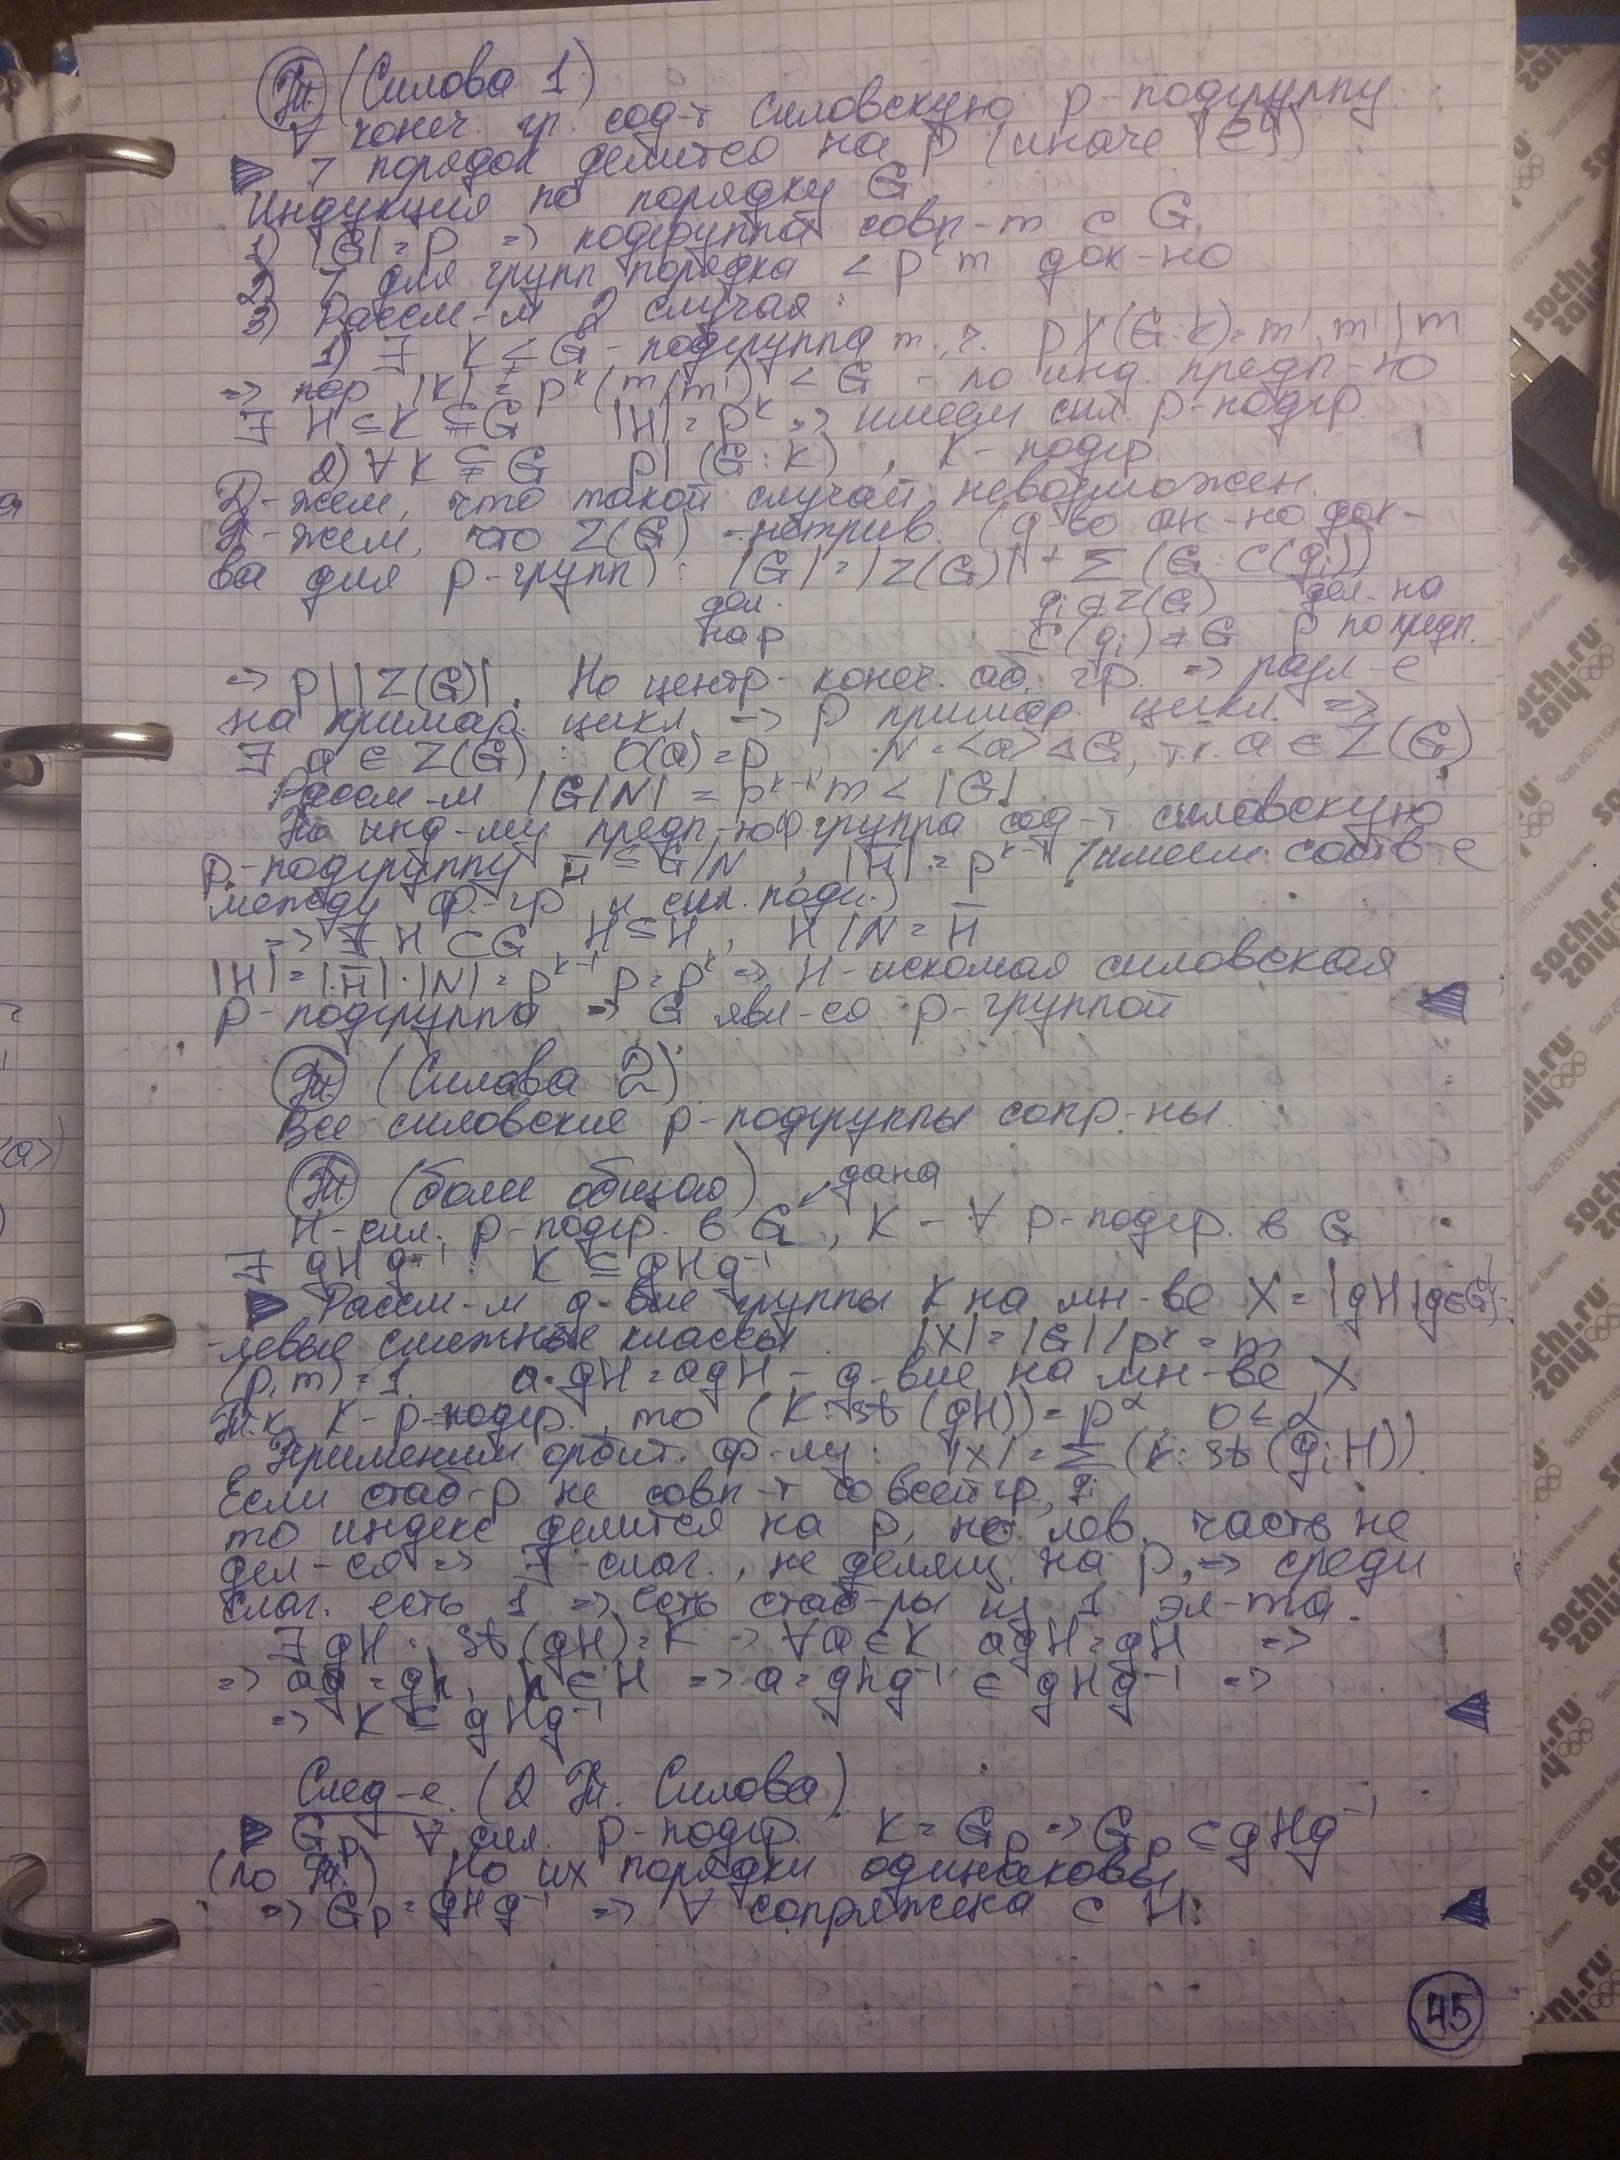 Т. (Силова 1)
∀ конеч. гр. сод-т силовскую p-подгруппу
порядок делится на p (иначе {e})
Индукция по порядку G
1) |G| = p ⇒ подгруппа совп-т с G.
2) для групп порядка < pᵏm док-но
3) Рассм-м 2 случая:
1) ∃ K ⊊ G - подгруппа т.ч. p∤(G:K)=m', m'|m
⇒ пор |K| = pᵏ(m/m') < G - по инд. предп-ю
∃ H ⊆ K ⊊ G |H| = pᵏ ⇒ имеем сил. p-подгр.
2) ∀ K ⊊ G p | (G:K), K - подгр.
Д-жем, что такой случай невозможен.
Д-жем, что Z(G) - нетрив. (д-во ан-но док-
ва для p-групп): |G| = |Z(G)| + Σ (G:C(gᵢ))
дел. gᵢ∉Z(G) дел. на
на p C(gᵢ)≠G p по предп.
⇒ p | |Z(G)|. Но центр - конеч. аб. гр. ⇒ разл-е
на примар. цикл. → p примар. цикл. ⇒
∃ a ∈ Z(G): O(a)=p, N=<a>⊲G, т.к. a ∈ Z(G)
Рассм-м |G/N| = pᵏ⁻¹m < |G|
По инд-му предп-ю ф.группа сод-т силовскую
p-подгруппу H̄ ⊆ G/N, |H̄| = pᵏ⁻¹ (имеем соотв-е
между ф.-гр и сил. подг.)
⇒ ∃ H ⊂ G, H ⊆ H, H/N = H̄
|H| = |H̄|·|N| = pᵏ⁻¹ p = pᵏ ⇒ H - искомая силовская
p-подгруппа ⇒ G явл-ся p-группой
Т. (Силова 2)
Все силовские p-подгруппы сопр-ны.
Т. (более общая) дана
H - сил. p-подгр. в G, K - ∀ p-подгр. в G
∃ gHg⁻¹: K ⊆ gHg⁻¹
Рассм-м д-вие группы K на мн-ве X = {gH|g∈G}-
-левые смежные классы. |X| = |G|/pᵏ = m
(p,m)=1. a∘gH = agH - д-вие на мн-ве X
Т.к. K - p-подгр., то (K:st(gH)) = p^α, 0≤α
Применим орбит. ф-лу: |X| = Σ (K:st(gᵢH))
Если стаб-р не совп-т со всей гр., gᵢ
то индекс делится на p, но лев. часть не
дел-ся ⇒ ∃ слаг., не делящ. на p, ⇒ среди
слаг. есть 1 ⇒ есть стаб-ры из 1 эл-та.
∃ gH: st(gH)=K → ∀a∈K agH=gH ⇒
⇒ ag=gh, h∈H ⇒ a=ghg⁻¹ ∈ gHg⁻¹ ⇒
⇒ K ⊆ gHg⁻¹
След-е (2 Т. Силова)
Gp - ∀ сил. p-подгр. K = Gp ⇒ Gp ⊂ gHg⁻¹
(по Т.) Но их порядки одинаковы
⇒ Gp = gHg⁻¹ ⇒ ∀ сопряжена с H.
45
sochi.ru
2014